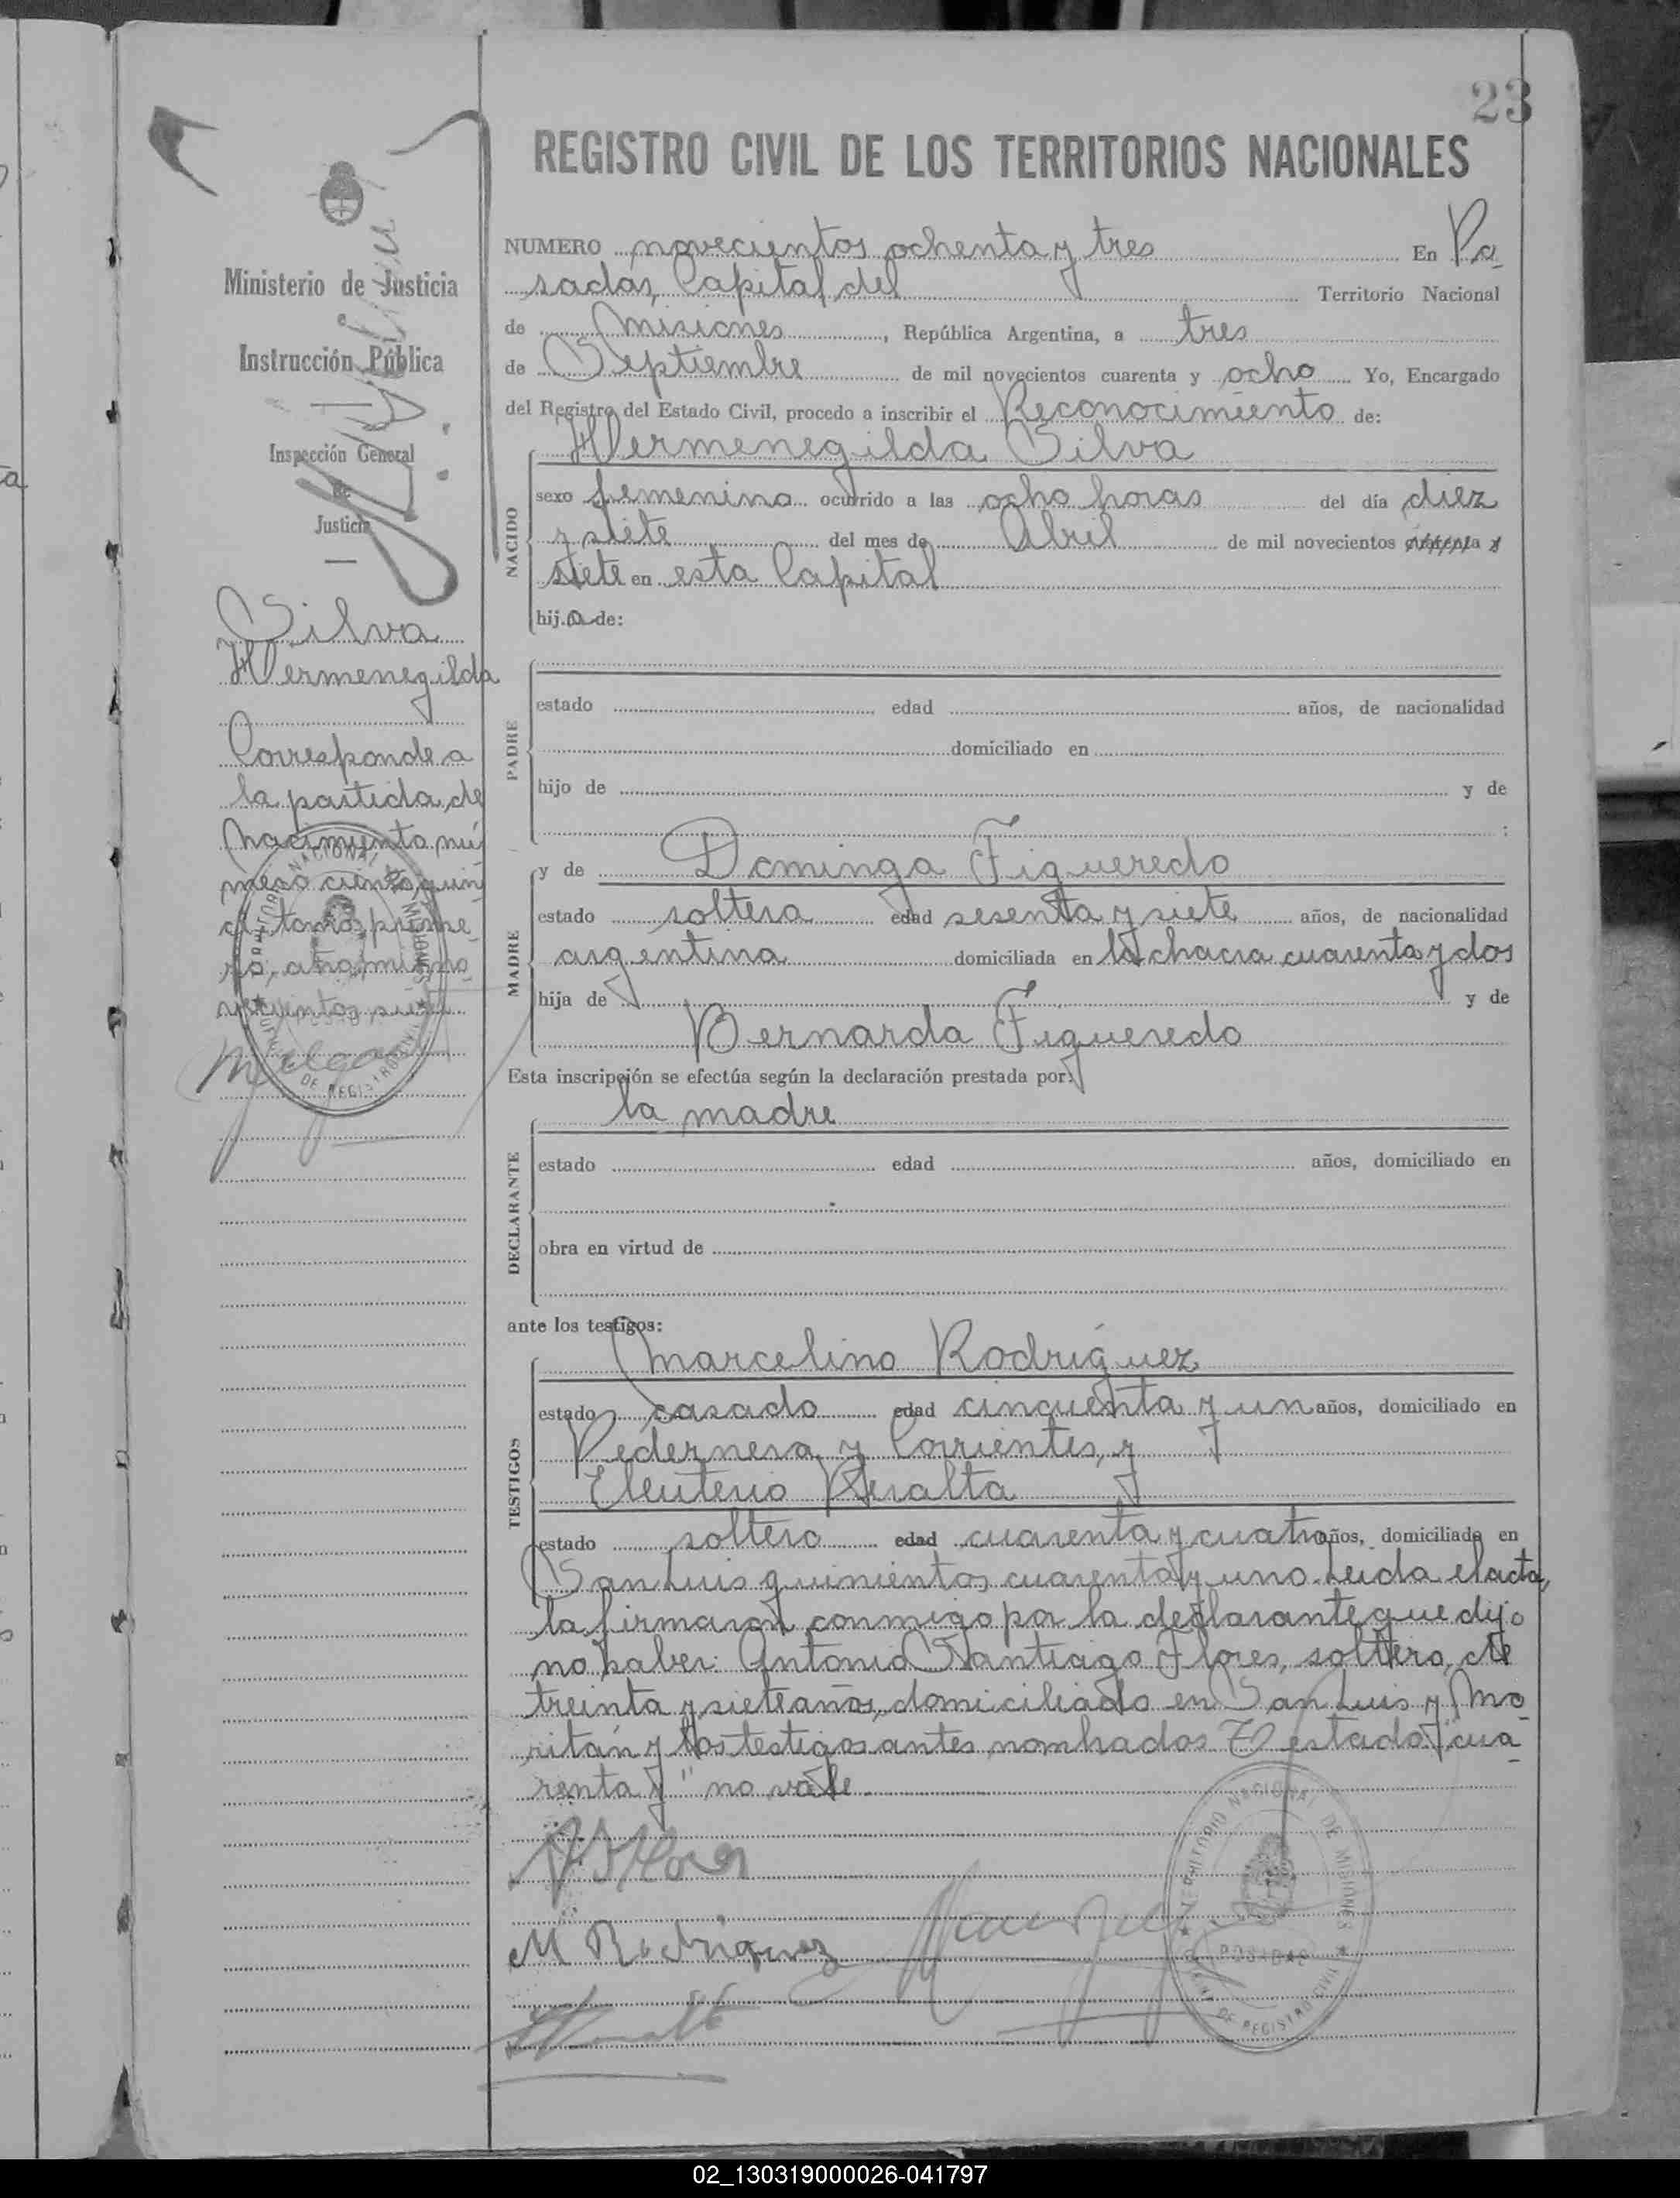 23
REGISTRO CIVIL DE LOS TERRITORIOS NACIONALES
Ministerio de Justicia
e
Instrucción Pública
Inspección General
de
Justicia
Silva
Hermenegilda
Corresponde a
la partida de
nacimiento nú-
mero ciento quin
ce, tomo prime-
ro, año mil no-
vecientos siete
NUMERO novecientos ochenta y tres En Po-
sadas, Capital del Territorio Nacional
de Misiones, República Argentina, a tres
de Septiembre de mil novecientos cuarenta y ocho Yo, Encargado
del Registro del Estado Civil, procedo a inscribir el Reconocimiento de:
Hermenegilda Silva
NACIDO
sexo femenino ocurrido a las ocho horas del día diez
y siete del mes de Abril de mil novecientos cuarenta y
siete en esta Capital
hij.a de:
PADRE
estado edad años, de nacionalidad
domiciliado en
hijo de y de
:
y de Dominga Figueredo
MADRE
estado soltera edad sesenta y siete años, de nacionalidad
argentina domiciliada en la chacra cuarenta y dos
hija de y de
Bernarda Figueredo
Esta inscripción se efectúa según la declaración prestada por:
la madre
DECLARANTE
estado edad años, domiciliado en
obra en virtud de
ante los testigos:
Marcelino Rodríguez
TESTIGOS
estado casado edad cincuenta y un años, domiciliado en
Pedernera y Corrientes, y
Eleuterio Peralta
estado soltero edad cuarenta y cuatro años, domiciliado en
San Luis quinientos cuarenta y uno. Leida el acta,
la firmaron conmigo por la declarante que dijo
no saber: Antonio Santiago Flores, soltero, de
treinta y siete años, domiciliado en San Luis y Mo-
ritán y los testigos antes nombrados Testado: "cua-
renta y" no vale
M Rodriguez
TERRITORIO NACIONAL DE MISIONES
POSADAS
DE REGISTRO CIVIL
02_130319000026-041797